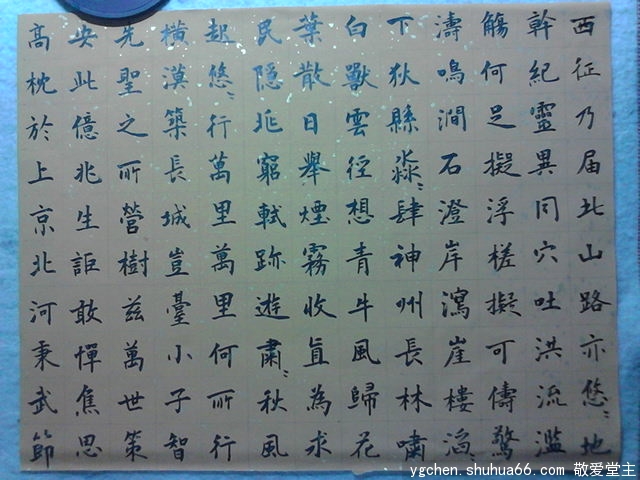 西征乃届北山路亦悠〻地
幹紀靈異同穴吐洪流濫
觴何足擬浮槎擬可儔驚
濤鳴澗石澄岸瀉崖樓滔〻
下狄縣淼〻肆神州長林嘯
白獸雲徑想青牛風歸花
葉散日舉煙霧收直為求
民隱非窮軾跡遊肅〻秋風
起悠〻行萬里萬里何所行
橫漠築長城豈臺小子智
先聖之所營樹茲萬世策
安此億兆生詎敢憚焦思
高枕於上京北河秉武節
ygchen.shuhua66.com 敬爱堂主